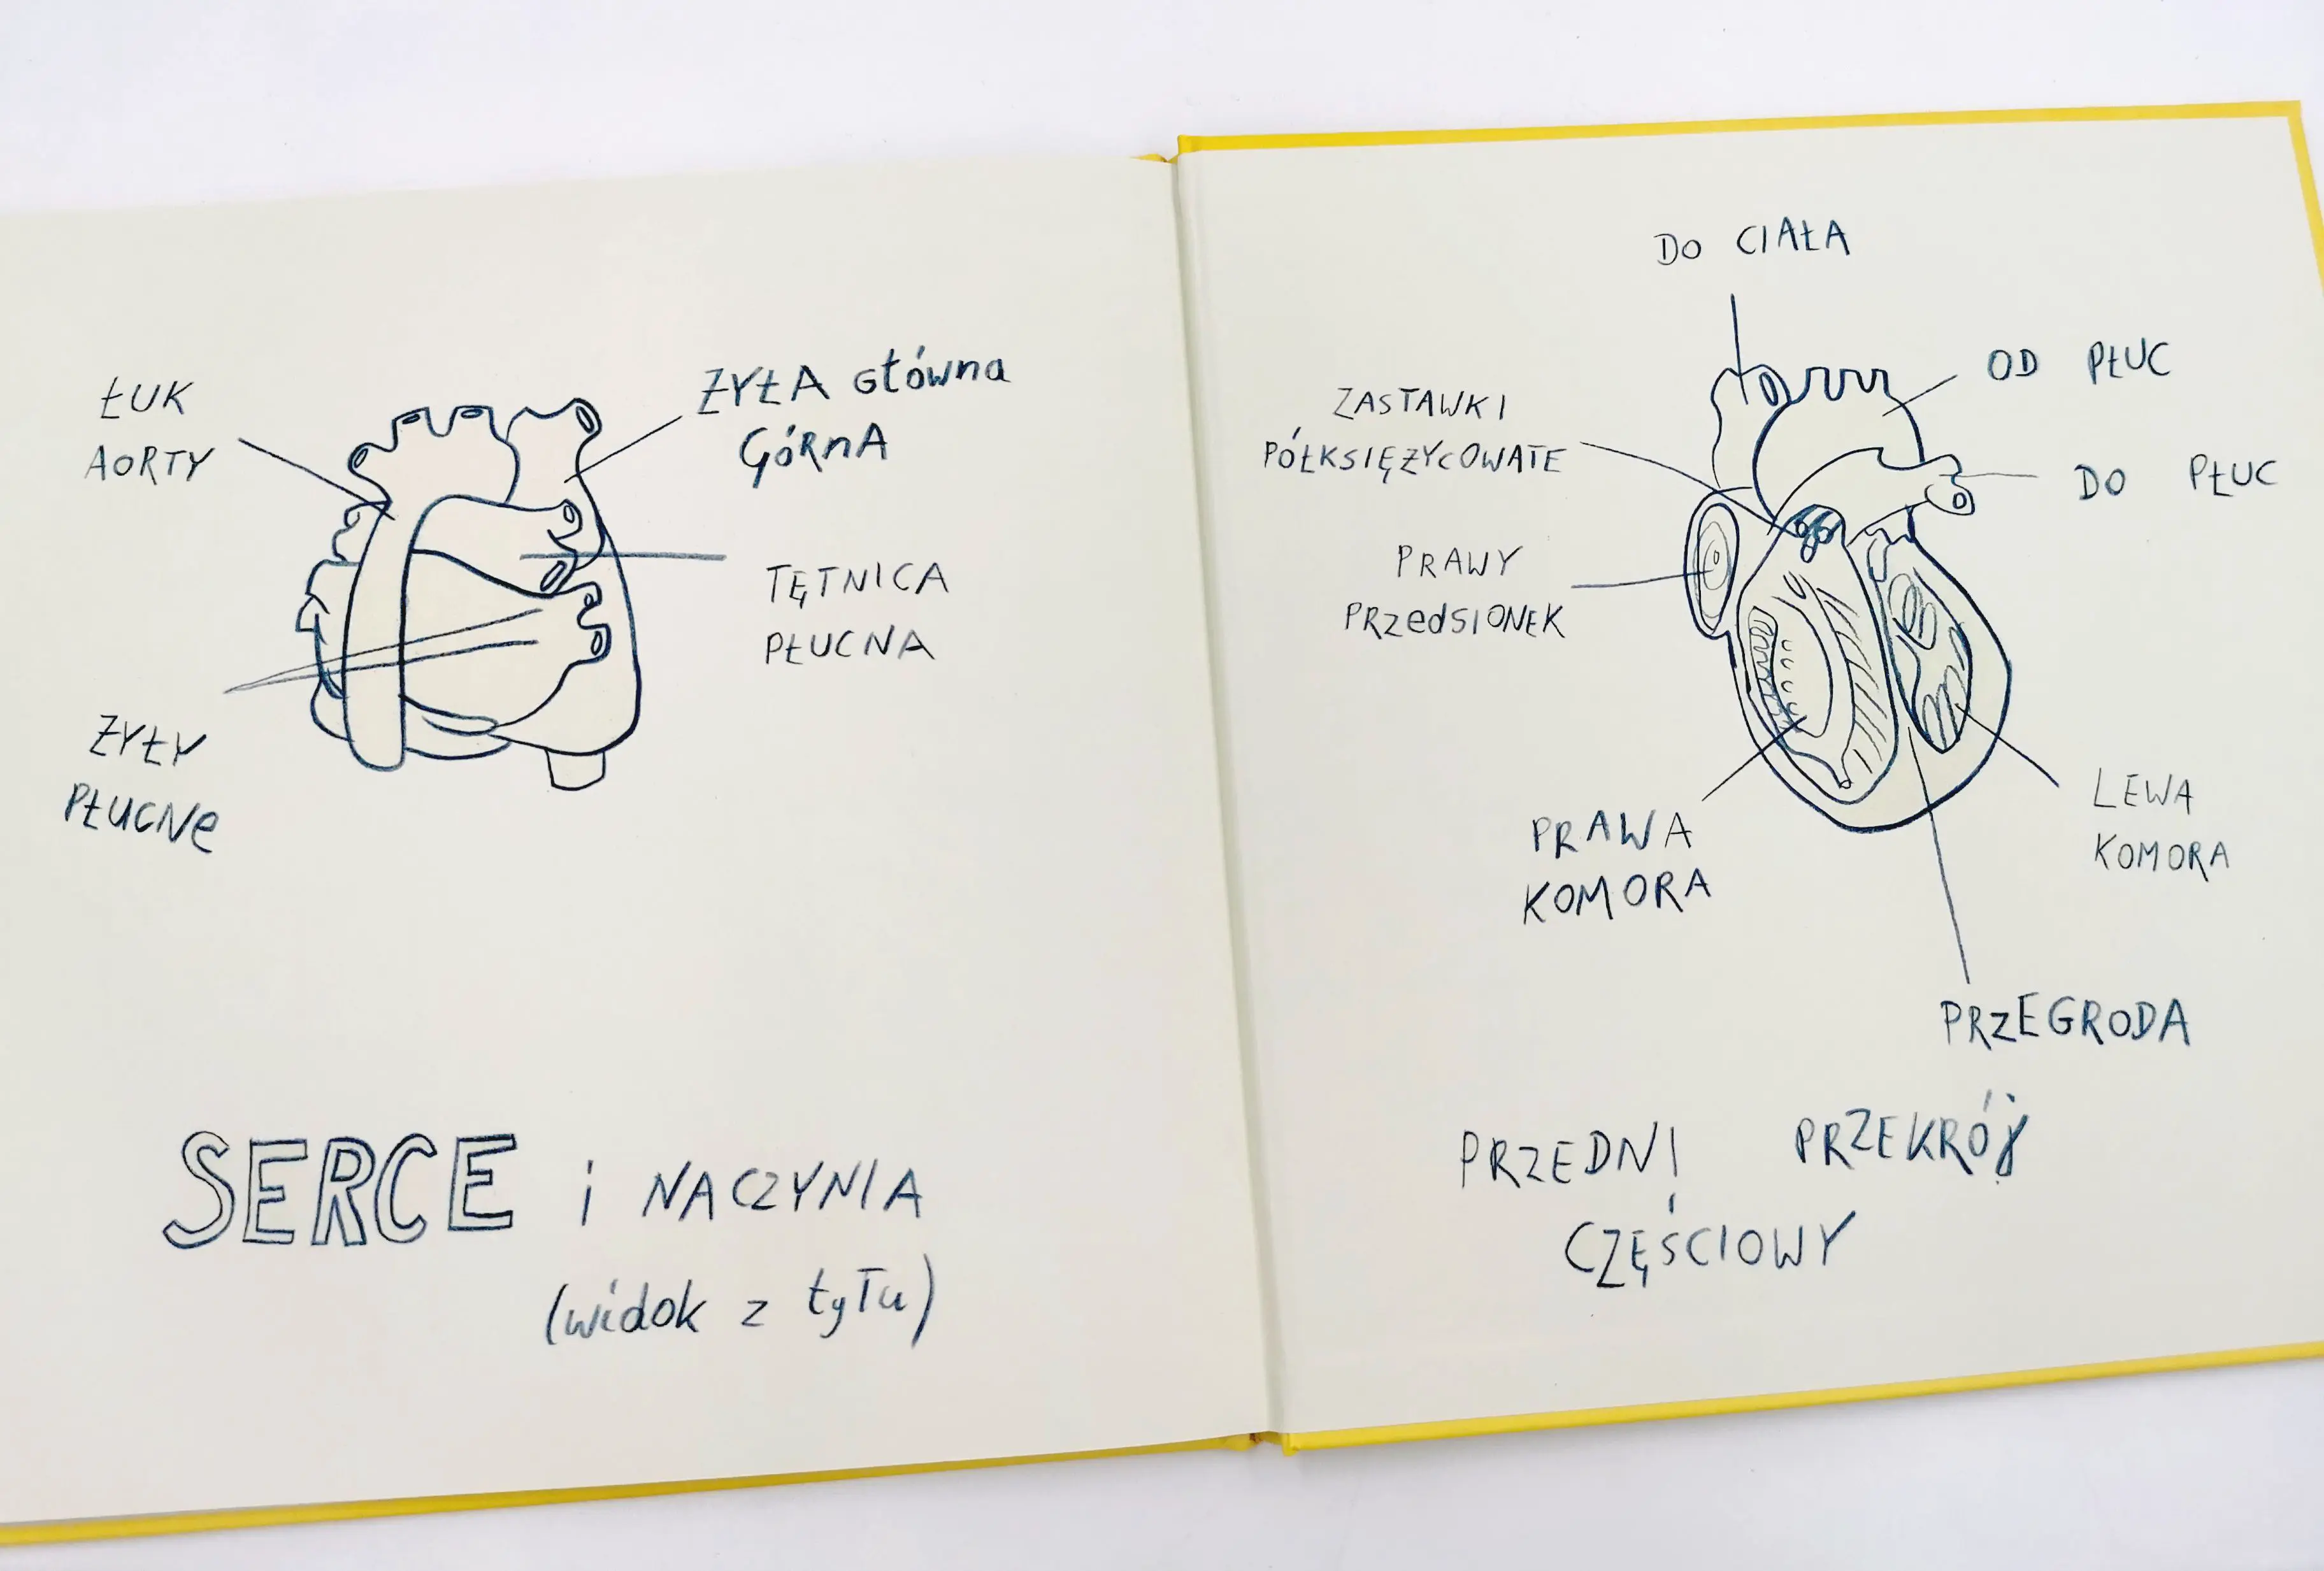 ŁUK
AORTY
ŻYŁA Główna
GÓRnA
TĘTNICA
PŁUCNA
ŻYŁY
PŁUCNe
SERCE i NACZYNIA
(widok z tyłu)
DO CIAŁA
OD PŁUC
ZASTAWKI
PÓŁKSIĘŻYCOWATE
DO PŁUC
PRAWY
PRZedSIONEK
PRAWA
KOMORA
LEWA
KOMORA
PRZEGRODA
PRZEDNI PRZEKRÓJ
CZĘŚCIOWY